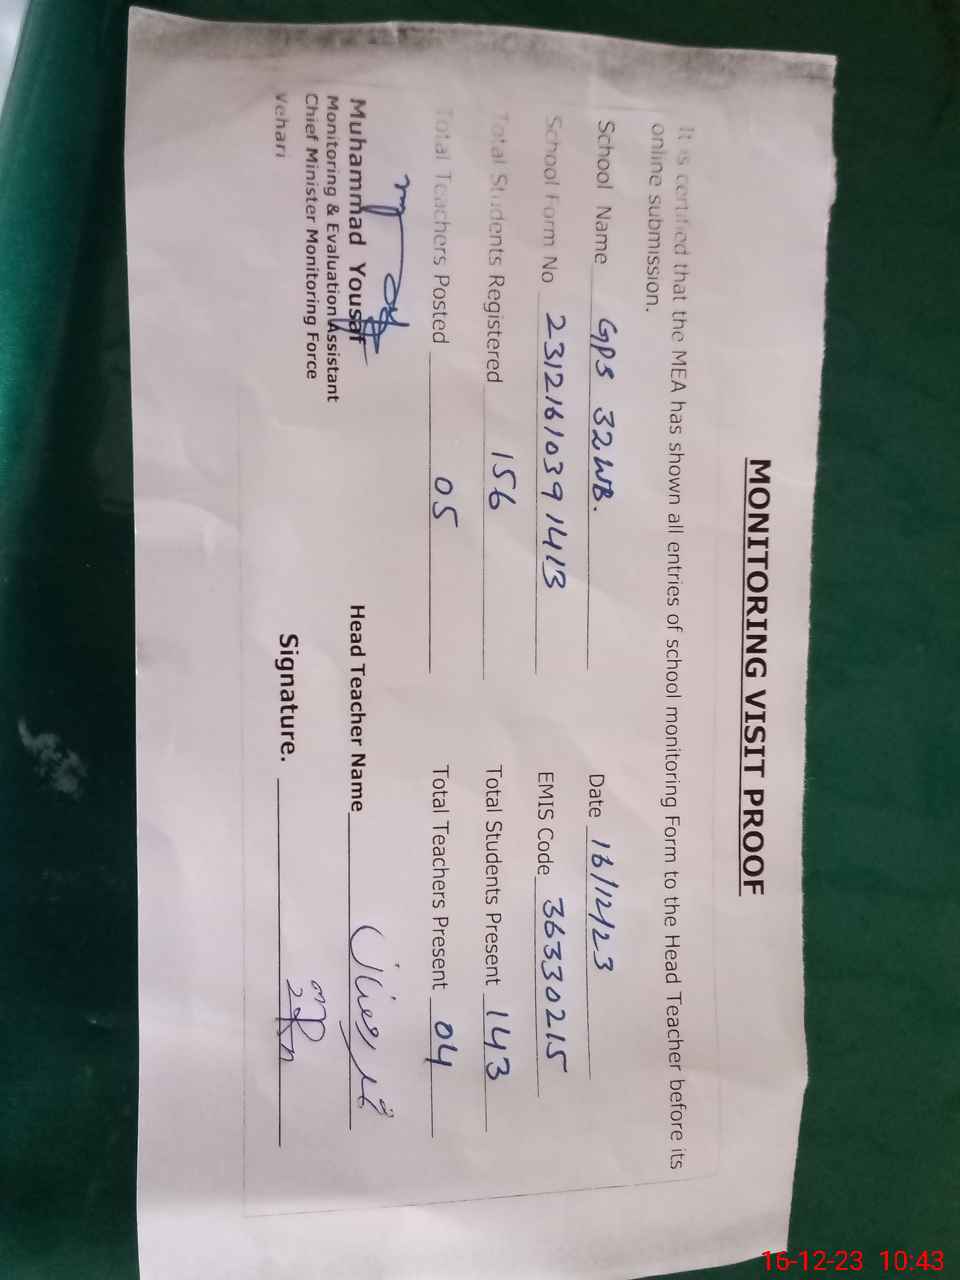 MONITORING VISIT PROOF
It is certified that the MEA has shown all entries of school monitoring Form to the Head Teacher before its
online submission.
School Name GPS 32WB. Date 16/12/23
School Form No 2312161039 1413 EMIS Code 36330215
Total Students Registered 156 Total Students Present 143
Total Teachers Posted 05 Total Teachers Present 04
Muhammad Yousaf Head Teacher Name
Monitoring & Evaluation Assistant
Chief Minister Monitoring Force
Vehari Signature.
16-12-23 10:43